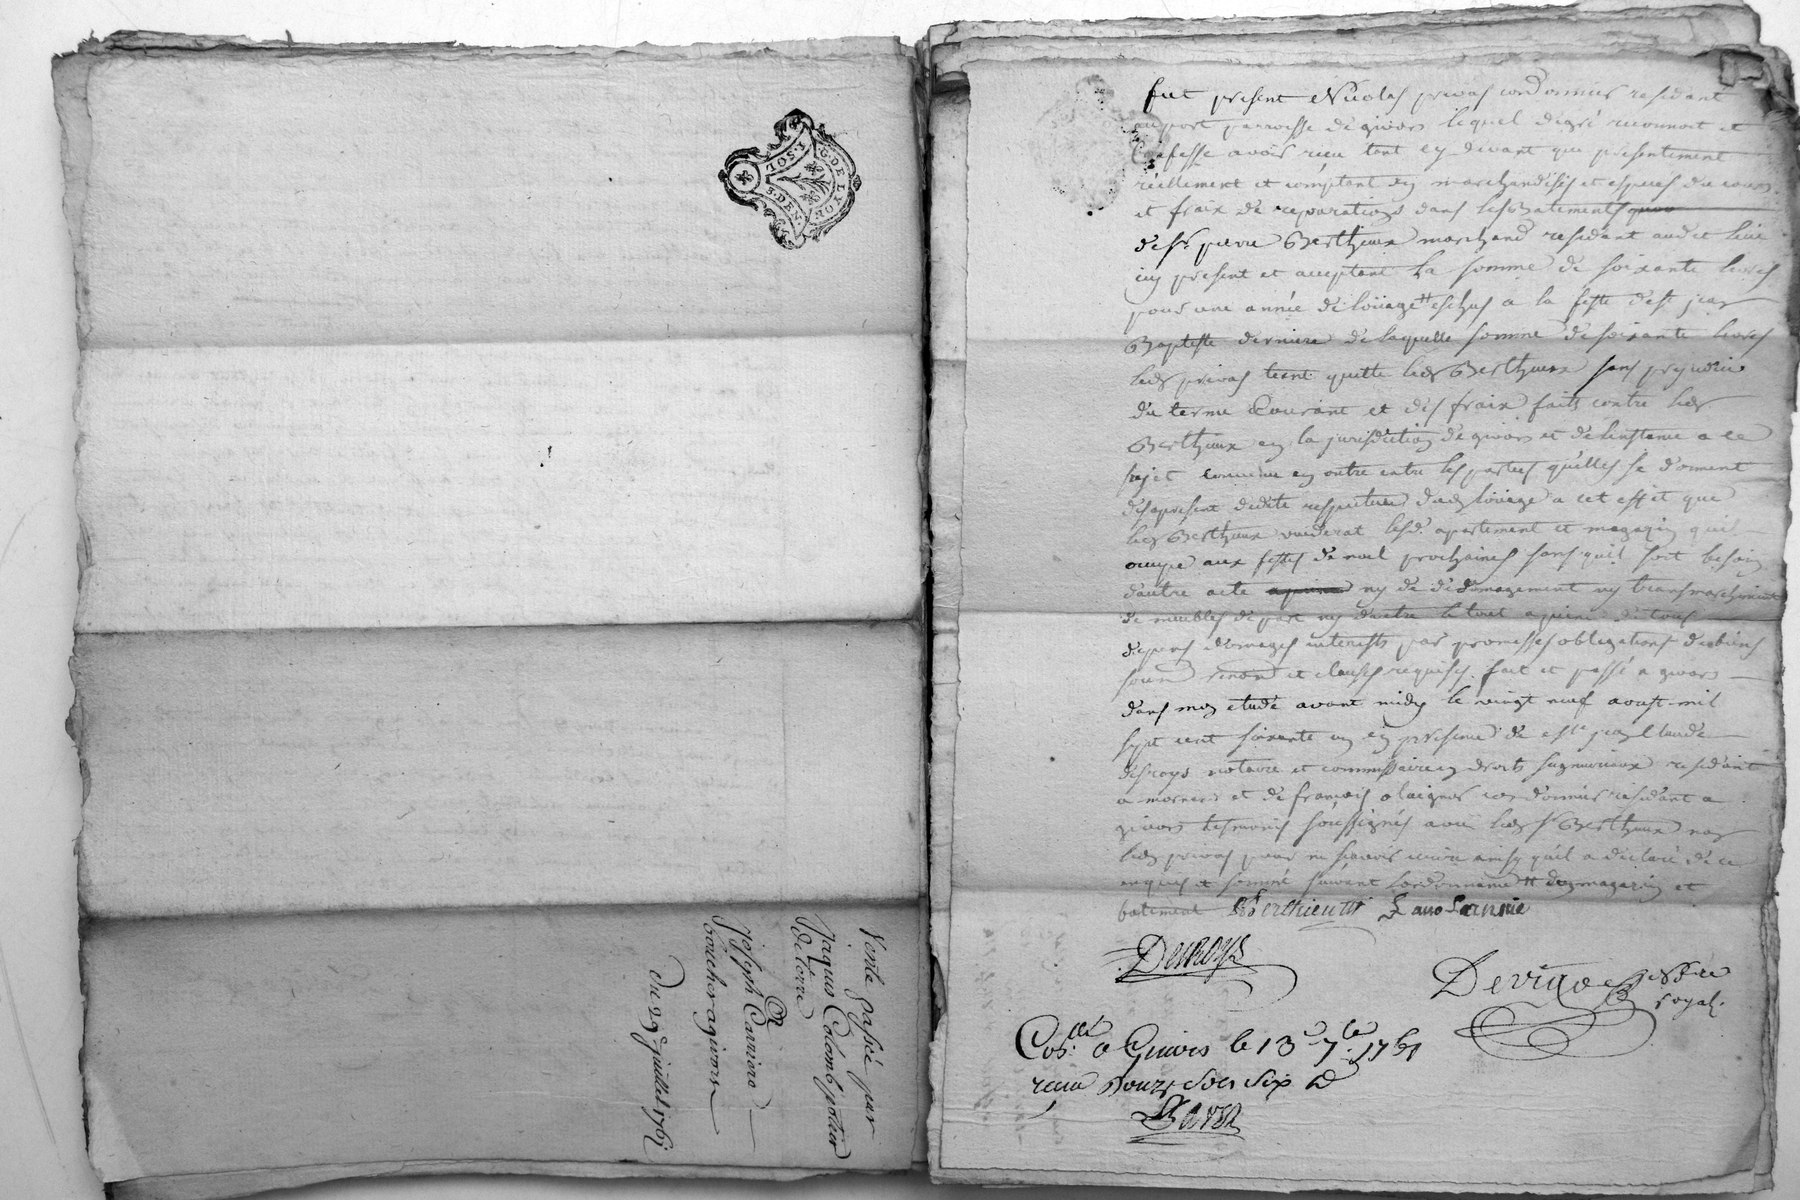 G. DE LYON
1. SOL
5. DEN.
Vente passée par
Jaques Colomb potier
de terre
a
Joseph Carriere
boucher a givors
Du 29e juillet 1761
fut present Nicolas privas cordonnier residant
au port parroisse de givors lequel de gré reconnoit et
Confesse avoir recu tant cy devant que presentement
réellement et comptant en marchandises et especes du cours
et fraix de reparations dans les Batements
de sr. pierre Berthieux marchand residant audit lieu
icy present et acceptant la somme de soixante livres
pour une année de loüage eschus a la feste de st jean
Baptiste derniere de laquelle somme de soixante livres
led privas tient quitte led Berthieux sans prejudice
du terme Courant et des fraix faits contre led
Berthieux en la jurisdiction de givors et de linstance a ce
sujet convenu en outre entre les parties qu'elles se donnent
desapresent dedite respective dud loüage a cet effet que
led Berthieux vuiderat lesd. apartement et magazin quil
occupe aux festes de noel prochaines sans quil soit besoin
d'autre acte ny de dedomagement ny transmarchement
de meubles de part ny dautre le tout a peine de tous
depens domages interests par promesses obligations de biens
soum renon et clauses requises fait et passé a givors
dans mon etude avant midy le vingt neuf aoust mil
sept cent soixante un en presence de Me jean Claude
desroys notaire et commissaire en droits seigneuriaux residant
a mornant et de francois cordonnier residant a
givors temoins soussignés avec led sr Berthieux non
led privas pour ne scavoir ecrire ainsy quil a declaré de ce
enquis et sommé suivant lordonnance dud magazin et
batiment Berthieux
Desroys
Devigne nore
royal.
Coñllé a Givors le 13e 7bre 1761
recu Douze sols six d